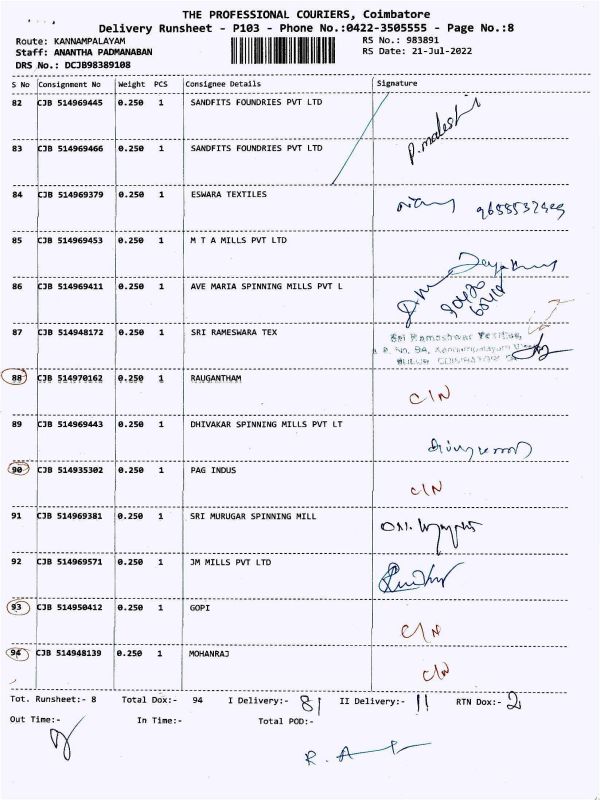 THE PROFESSIONAL COURIERS, Coimbatore
Delivery Runsheet - P103 - Phone No.:0422-3505555 - Page No.:8
Route: KANNAMPALAYAM RS No.: 983891
Staff: ANANTHA PADMANABAN RS Date: 21-Jul-2022
DRS No.: DCJB98389108
S No Consignment No Weight PCS Consignee Details Signature
82 CJB 514969445 0.250 1 SANDFITS FOUNDRIES PVT LTD
83 CJB 514969466 0.250 1 SANDFITS FOUNDRIES PVT LTD
84 CJB 514969379 0.250 1 ESWARA TEXTILES
85 CJB 514969453 0.250 1 M T A MILLS PVT LTD
86 CJB 514969411 0.250 1 AVE MARIA SPINNING MILLS PVT L
87 CJB 514948172 0.250 1 SRI RAMESWARA TEX
88 CJB 514970162 0.250 1 RAUGANTHAM C/N
89 CJB 514969443 0.250 1 DHIVAKAR SPINNING MILLS PVT LT
90 CJB 514935302 0.250 1 PAG INDUS C/N
91 CJB 514969381 0.250 1 SRI MURUGAR SPINNING MILL
92 CJB 514969571 0.250 1 JM MILLS PVT LTD
93 CJB 514950412 0.250 1 GOPI C/N
94 CJB 514948139 0.250 1 MOHANRAJ C/N
Tot. Runsheet:- 8 Total Dox:- 94 I Delivery:- 81 II Delivery:- 11 RTN Dox:- 2
Out Time:- In Time:- Total POD:-